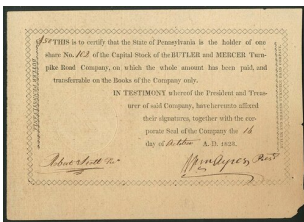 $50 THIS is to certify that the State of Pennsylvania is the holder of one
share No. 102 of the Capital Stock of the BUTLER and MERCER Turn-
pike Road Company, on which the whole amount has been paid, and
transferrable on the Books of the Company only.
IN TESTIMONY whereof the President and Treas-
urer of said Company, have hereunto affixed
their signatures, together with the cor-
porate Seal of the Company the 16
day of October A. D. 1823.
Robert Scott Tr.
Wm Ayres Prest